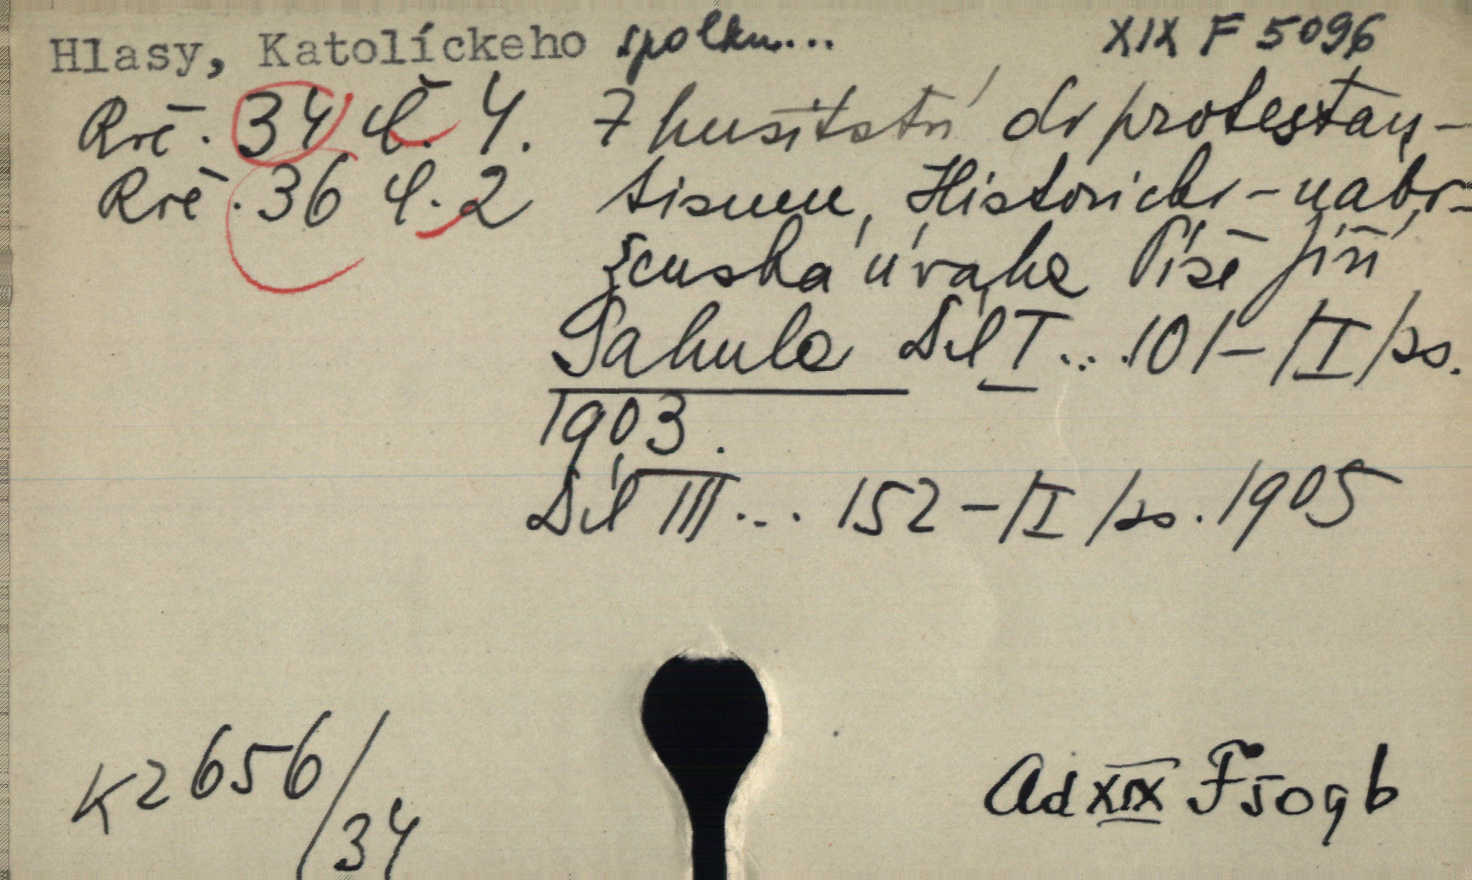 Hlasy, Katolíckeho spolku... XIX F 5096
Roč. 34 č. 4. Z husitství do protestan-
Roč. 36 č. 2 tismu, Historicko-nábo-
ženská úvaha Píše Jiří
Sahula Díl I... 101-|I|/ss.
1903.
Díl III... 152-|I /ss. 1905
K2 656/34
Ad XIX F 5096